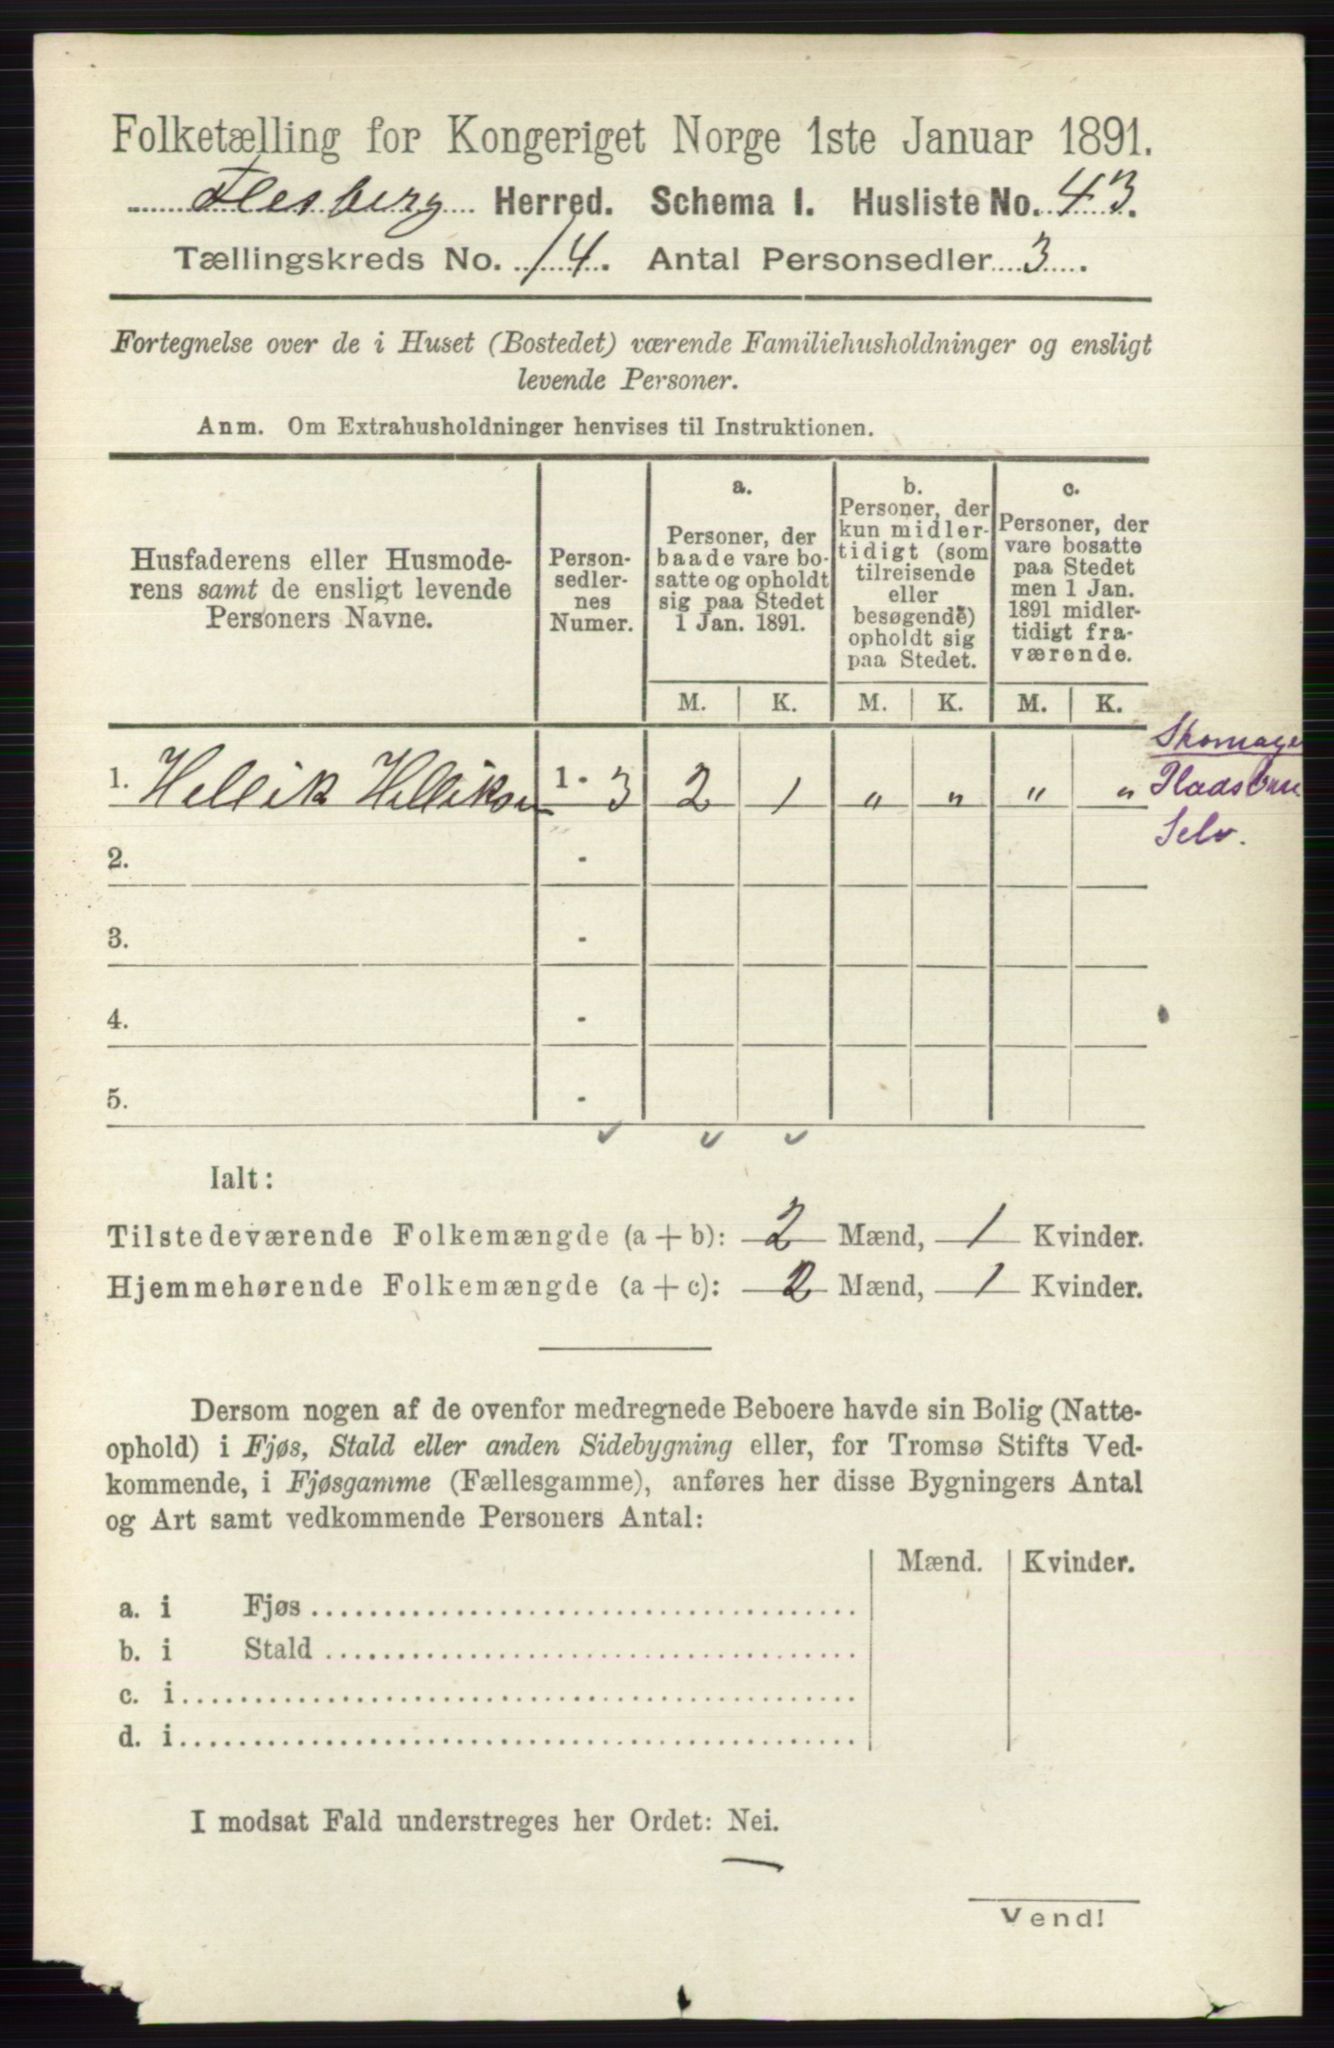 Folketælling for Kongeriget Norge 1ste Januar 1891.
Flesberg Herred. Schema I. Husliste No. 43.
Tællingskreds No. 14. Antal Personsedler 3.
Fortegnelse over de i Huset (Bostedet) værende Familiehusholdninger og ensligt
levende Personer.
Anm. Om Extrahusholdninger henvises til Instruktionen.
Husfaderens eller Husmode-
rens samt de ensligt levende
Personers Navne.
Person-
sedler-
nes
Numer.
a.
Personer, der
baade vare bo-
satte og opholdt
sig paa Stedet
1 Jan. 1891.
b.
Personer, der
kun midler-
tidigt (som
tilreisende
eller
besøgende)
opholdt sig
paa Stedet.
c.
Personer, der
vare bosatte
paa Stedet
men 1 Jan.
1891 midler-
tidigt fra-
værende.
M. K. M. K. M. K.
1. Hellik Hellikson 1 - 3 2 1 " " " "
Skomager
Pladsbru
Selv.
2. -
3. -
4. -
5. -
Ialt:
Tilstedeværende Folkemængde (a + b): 2 Mænd, 1 Kvinder.
Hjemmehørende Folkemængde (a + c): 2 Mænd, 1 Kvinder.
Dersom nogen af de ovenfor medregnede Beboere havde sin Bolig (Natte-
ophold) i Fjøs, Stald eller anden Sidebygning eller, for Tromsø Stifts Ved-
kommende, i Fjøsgamme (Fællesgamme), anføres her disse Bygningers Antal
og Art samt vedkommende Personers Antal:
Mænd. Kvinder.
a. i Fjøs
b. i Stald
c. i
d. i
I modsat Fald understreges her Ordet: Nei.
Vend!